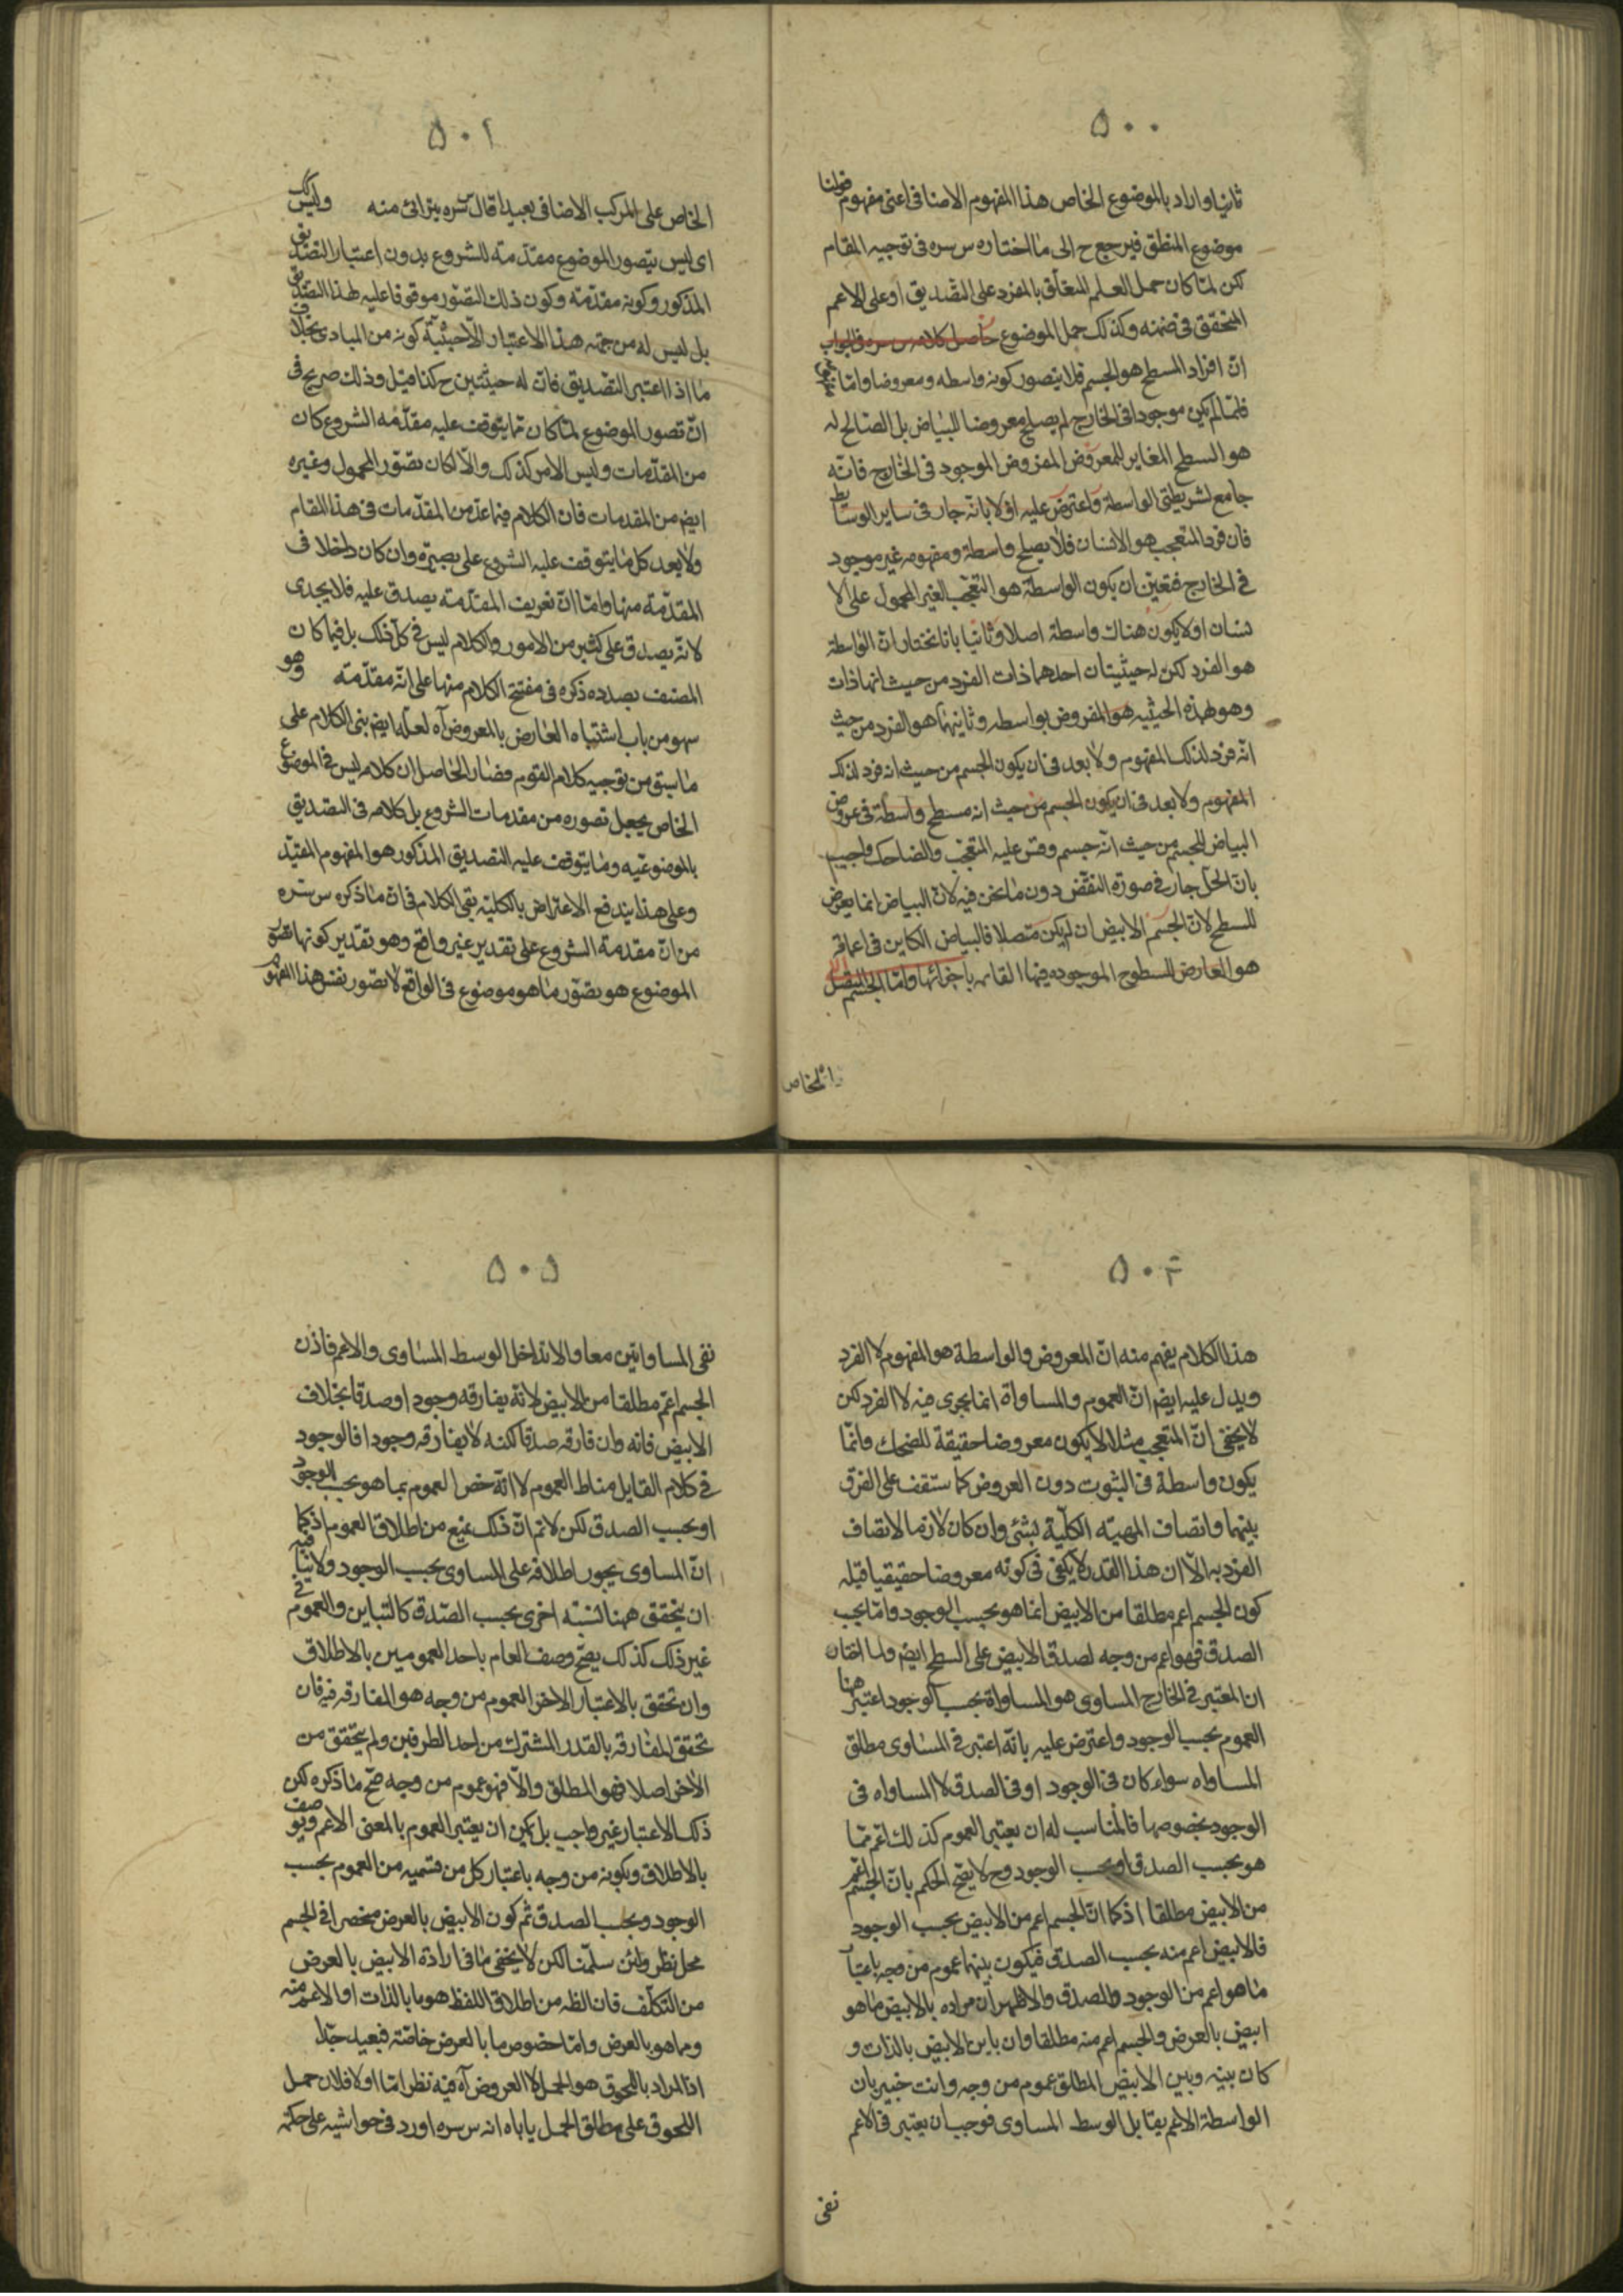 ٥٠٠
ثانيا واراد بالموضوع الخاص هذا المفهوم الاضافى اعنى مفهوم قولنا
موضوع المنطق فيرجع ح الى ما اختاره س سره فى توجيه المقام
لكن لما كان حمل العلم المتعلق بالمفرد على التصديق او على الاعم
المتحقق فى ضمنه وكذلك حمل الموضوع حاصل كلامه س سره فى الجواب
ان افراد المسطح هو الجسم فلا يتصور كونه واسطه ومعروضا واما
فلما لم يكن موجودا فى الخارج لم يصلح معروضا للبياض بل الصالح له
هو السطح المغاير للمعروض المفروض الموجود فى الخارج فانه
جامع لشريطتى الواسطة واعترض عليه اولا بانه جار فى ساير الوسائط
فان فرد المتعجب هو الانسان فلا يصلح واسطة ومفهومه غير موجود
فى الخارج فتعين ان يكون الواسطة هو التعجب الغير المحمول على الا
نسان او لا يكون هناك واسطة اصلا وثانيا بانا نختار ان الواسطة
هو الفرد لكن له حيثيتان احدهما ذات الفرد من حيث انها ذات
وهو لهذه الحيثيه هو المفروض بواسطه وثانيهما هو الفرد من حيث
انه فرد لذلك المفهوم ولا بعد فى ان يكون الجسم من حيث انه فرد لذلك
المفهوم ولا بعد فى ان يكون الجسم من حيث انه مسطح واسطة فى عروض
البياض للجسم من حيث انه جسم وقس عليه المتعجب والضاحك واجيب
بان الحل جار فى صورة النقض دون ما نحن فيه لان البياض انما يعرض
للسطح لان الجسم الابيض ان لم يكن متصلا فالبياض الكاين فى اعماقه
هو العارض للسطوح الموجوده فيها القائمه باجزائها واما الجسم المتصل
الخاص
٥٠١
الخاص على المركب الاضافى بعيدا قال س سره بترائى منه وليس كك
اى ليس بتصور الموضوع مقدمته للشروع بدون اعتبار التصديق
المذكور وكونه مقدمته وكون ذلك التصور موقوفا عليه لهذا التصديق
بل ليس له من جهته هذا الاعتبار الا حيثية كونه من المبادى بخلاف
ما اذا اعتبر التصديق فان له حيثيتين ح كذا قيل وذلك صريح فى
ان تصور الموضوع لما كان مما يتوقف عليه مقدمه الشروع كان
من المقدمات وليس الامر كذلك والا لكان تصور المحمول وغيره
ايض من المقدمات فان الكلام فيما عد من المقدمات فى هذا المقام
ولا يعد كل ما يتوقف عليه الشروع على بصيرة وان كان داخلا فى
المقدمة منها واما ان تعريف المقدمته يصدق عليه فلا يجدى
لانه يصدق على كثير من الامور والكلام ليس فى كل ذلك بل فيما كان
المصنف بصدده ذكره فى مفتتح الكلام منها على انه مقدمته وهو
سهو من باب اشتباه العارض بالمعروض آه لعله ايض بنى الكلام على
ما سبق من توجيه كلام القوم فصار الحاصل ان كلامه ليس فى الموضوع
الخاص يجعل تصوره من مقدمات الشروع بل كلامه فى التصديق
بالموضوعيه وما يتوقف عليه التصديق المذكور هو المفهوم المقيد
وعلى هذا يندفع الاعتراض بالكلية بقى الكلام فى ان ما ذكره س سره
من ان مقدمة الشروع على تقدير غير واقع وهو تقدير كونها تصور
الموضوع هو تصور ما هو موضوع فى الواقع لا تصور نفس هذا المفهوم
٥٠٤
هذا الكلام يفهم منه ان المعروض والواسطة هو المفهوم لا الفرد
ويدل عليه ايض ان العموم والمساواة انما يجرى فيه لا الفرد لكن
لا يخفى ان المتعجب مثلا لا يكون معروضا حقيقة للضحك وانما
يكون واسطة فى الثبوت دون العروض كما ستقف على الفرق
بينهما واتصاف المهيته الكلية بشئ وان كان لازما لاتصاف
الفرد به الا ان هذا القدر لا يكفى فى كونه معروضا حقيقيا قيله
كون الجسم اعم مطلقا من الابيض انما هو بحسب الوجود واما بحسب
الصدق فهو اعم من وجه لصدق الابيض على السطح ايض ولما اختار
ان المعتبر فى الخارج المساوى هو المساواة بحسب الوجود اعتبر هنا
العموم بحسب الوجود واعترض عليه بانه اعتبر فى المساوى مطلق
المساواه سواء كان فى الوجود او فى الصدق لا المساواه فى
الوجود بخصوصها فالمناسب له ان يعتبر العموم كذلك اعم مما
هو بحسب الصدق او بحسب الوجود وح لا يصح الحكم بان الجسم اعم
من الابيض مطلقا اذ كما ان الجسم اعم من الابيض بحسب الوجود
فالابيض اعم منه بحسب الصدق فيكون بينهما عموم من وجه باعتبار
ما هو اعم من الوجود والصدق والاظهر ان مراده بالابيض ما هو
ابيض بالعرض والجسم اعم منه مطلقا وان باين الابيض بالذات و
كان بينه وبين الابيض المطلق عموم من وجه وانت خبير بان
الواسطة الاعم يقابل الوسط المساوى فوجب ان يعتبر فى الاعم
نفى
٥٠٥
نفى المساواتين معا والا تداخل الوسط المساوى والاعم فاذن
الجسم اعم مطلقا من الابيض لانه يفارقه وجودا وصدقا بخلاف
الابيض فانه وان فارقه صدقا لكنه لا يفارقه وجودا فالوجود
فى كلام القايل مناط العموم لا انه خص العموم بما هو بحسب الوجود
او بحسب الصدق لكن لا نم ان ذلك يمنع من اطلاق العموم اذ كما
ان المساوى يجوز اطلاقه على المساوى بحسب الوجود ولا ينافيه
ان يتحقق ههنا نسبته اخرى بحسب الصدق كالتباين والعموم فى
غير ذلك كذلك يصح وصف العام باحد العمومين بالاطلاق
وان تحقق بالاعتبار الاخر العموم من وجه هو المفارقه فيه فان
تحقق المفارقه بالقدر المشترك من احد الطرفين ولم يتحقق من
الاخر اصلا فهو المطلق والا فهو عموم من وجه صح ما ذكره لكن
ذلك الاعتبار غير واجب بل يمكن ان يعتبر العموم بالمعنى الاعم ويوصف
بالاطلاق وبكونه من وجه باعتبار كل من قسميه من العموم بحسب
الوجود وبحسب الصدق ثم كون الابيض بالعرض منحصرا فى الجسم
محل نظر ولئن سلمنا لكن لا يخفى ما فى ارادة الابيض بالعرض
من التكلف فان الظه من اطلاق اللفظ هو ما بالذات او الاعم منه
ومما هو بالعرض واما خصوص ما بالعرض خاصته فبعيد جدا
اذ المراد باللحوق هو الحمل لا العروض آه فيه نظر اما اولا فلان حمل
اللحوق على مطلق الحمل ياباه انه س سره اورد فى حواشيه على حكمة